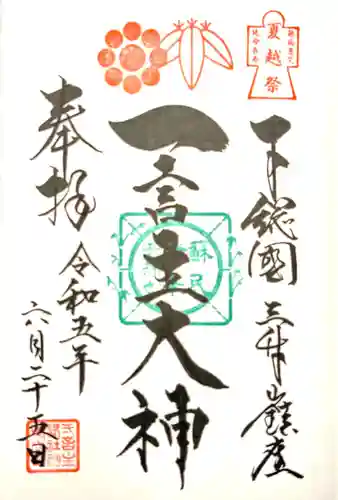 夏越祭
下総國 三井山鎮座
一言主大神
蘇民
奉拝
令和五年
六月二十五日